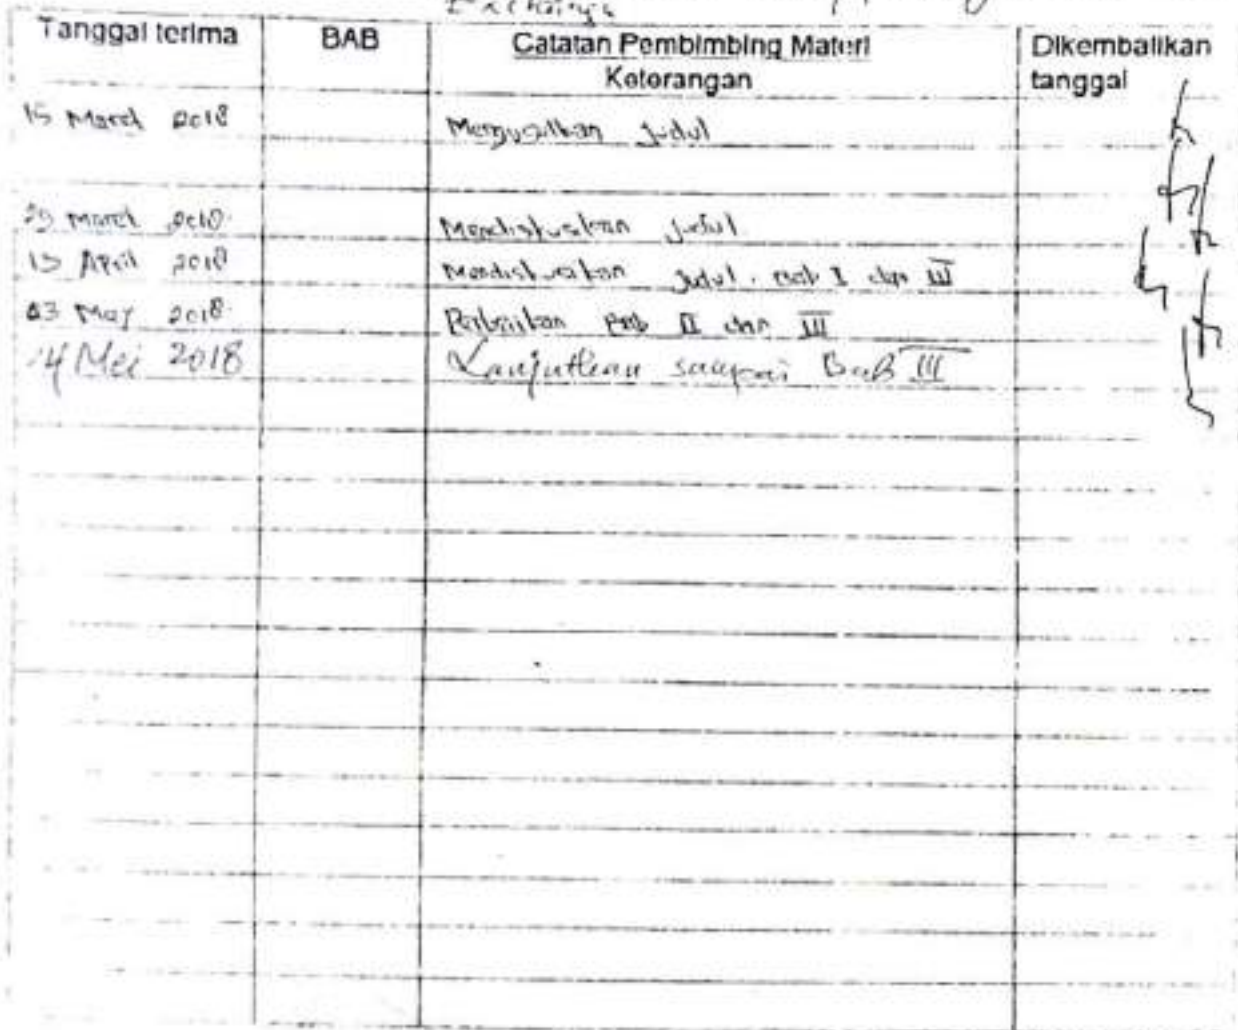 Exchange
Tanggal terima BAB Catatan Pembimbing Materi Dikembalikan
Keterangan tanggal
15 March 2018 Mengusulkan Judul
29 March 2018 Mendiskusikan Judul
13 April 2018 Mendiskusikan Judul, Bab I dan III
03 May 2018 Perbaikan Bab II dan III
14 Mei 2018 Lanjutkan sampai Bab III